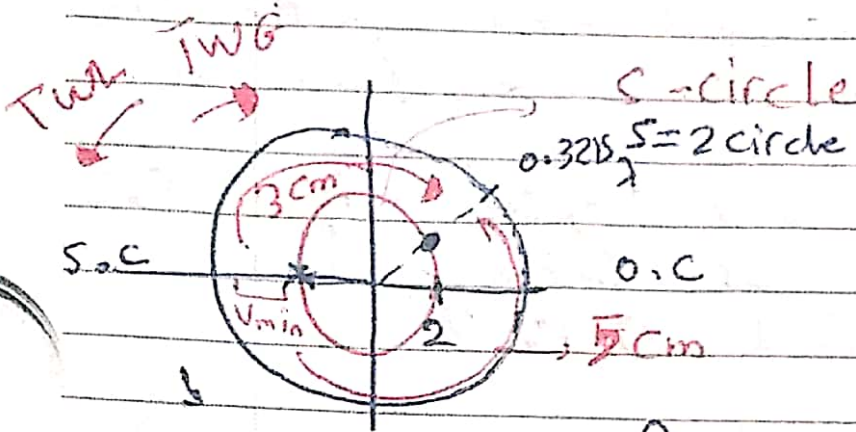 TWL TWG
S-circle
0.325 λ S=2 circle
3 Cm
S.C
O.C
Vmin
2
5 Cm